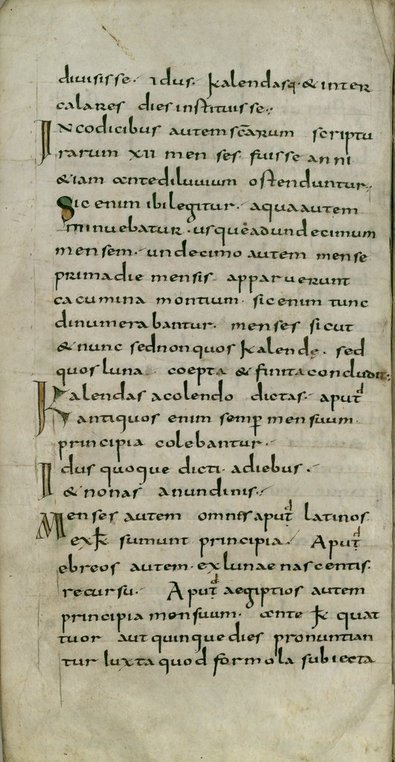 diuisisse · idus · kalendasq· & inter
calares dies instituisse ·
In codicibus autem scarum scriptu
rarum xii menses fuisse anni
& iam antediluuium ostenduntur ·
Sic enim ibi legitur · aqua autem
minuebatur · usque ad undecimum
mensem · undecimo autem mense
prima die mensis apparuerunt
cacumina montium · sic enim tunc
dinumerabantur · menses sicut
& nunc sed non quos kalende · sed
quos luna · coepta & finita concludit ·
Kalendas a colendo dictas · aput
antiquos enim semp mensuum
principia colebantur ·
Idus quoque dicti · a diebus ·
& nonas a nundinis ·
Menses autem omnes aput latinos
ex k sumunt principia · Aput
ebreos autem · ex lunae nascentis
recursu · Aput aegiptios autem
principia mensuum · ante k quat
tuor aut quinque dies pronuntian
tur iuxta quod formola subiecta